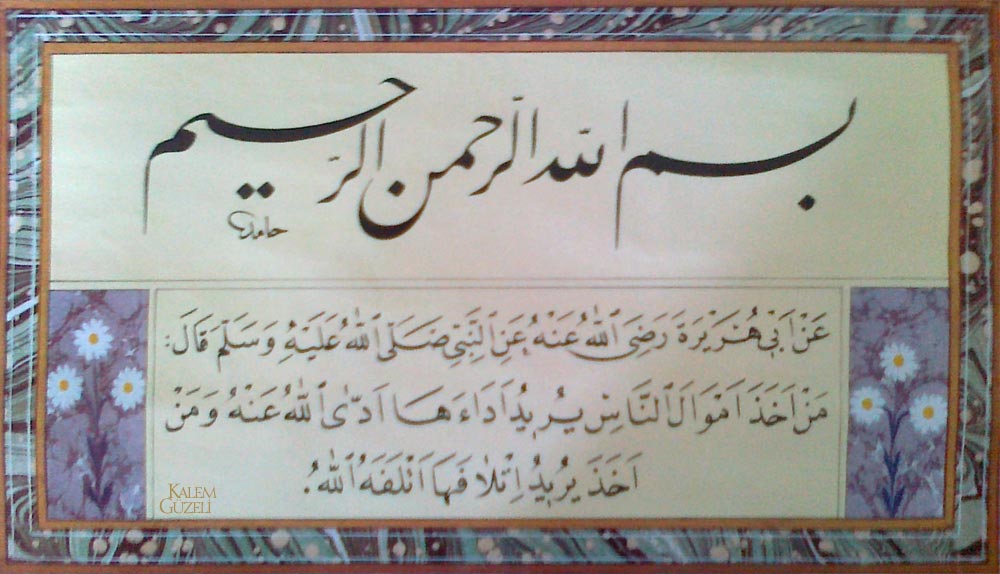 بسم الله الرحمن الرحيم
حامد
عَنْ اَبِي هُرَيْرَةَ رَضِيَ اللهُ عَنْهُ عَنِ النَّبِيِّ صَلَّى اللهُ عَلَيْهِ وَسَلَّمَ قَالَ:
مَنْ اَخَذَ اَمْوَالَ النَّاسِ يُرِيدُ اَدَاءَهَا اَدَّى اللهُ عَنْهُ وَمَنْ
اَخَذَ يُرِيدُ اِتْلَافَهَا اَتْلَفَهُ اللهُ.
KALEM
GÜZELİ